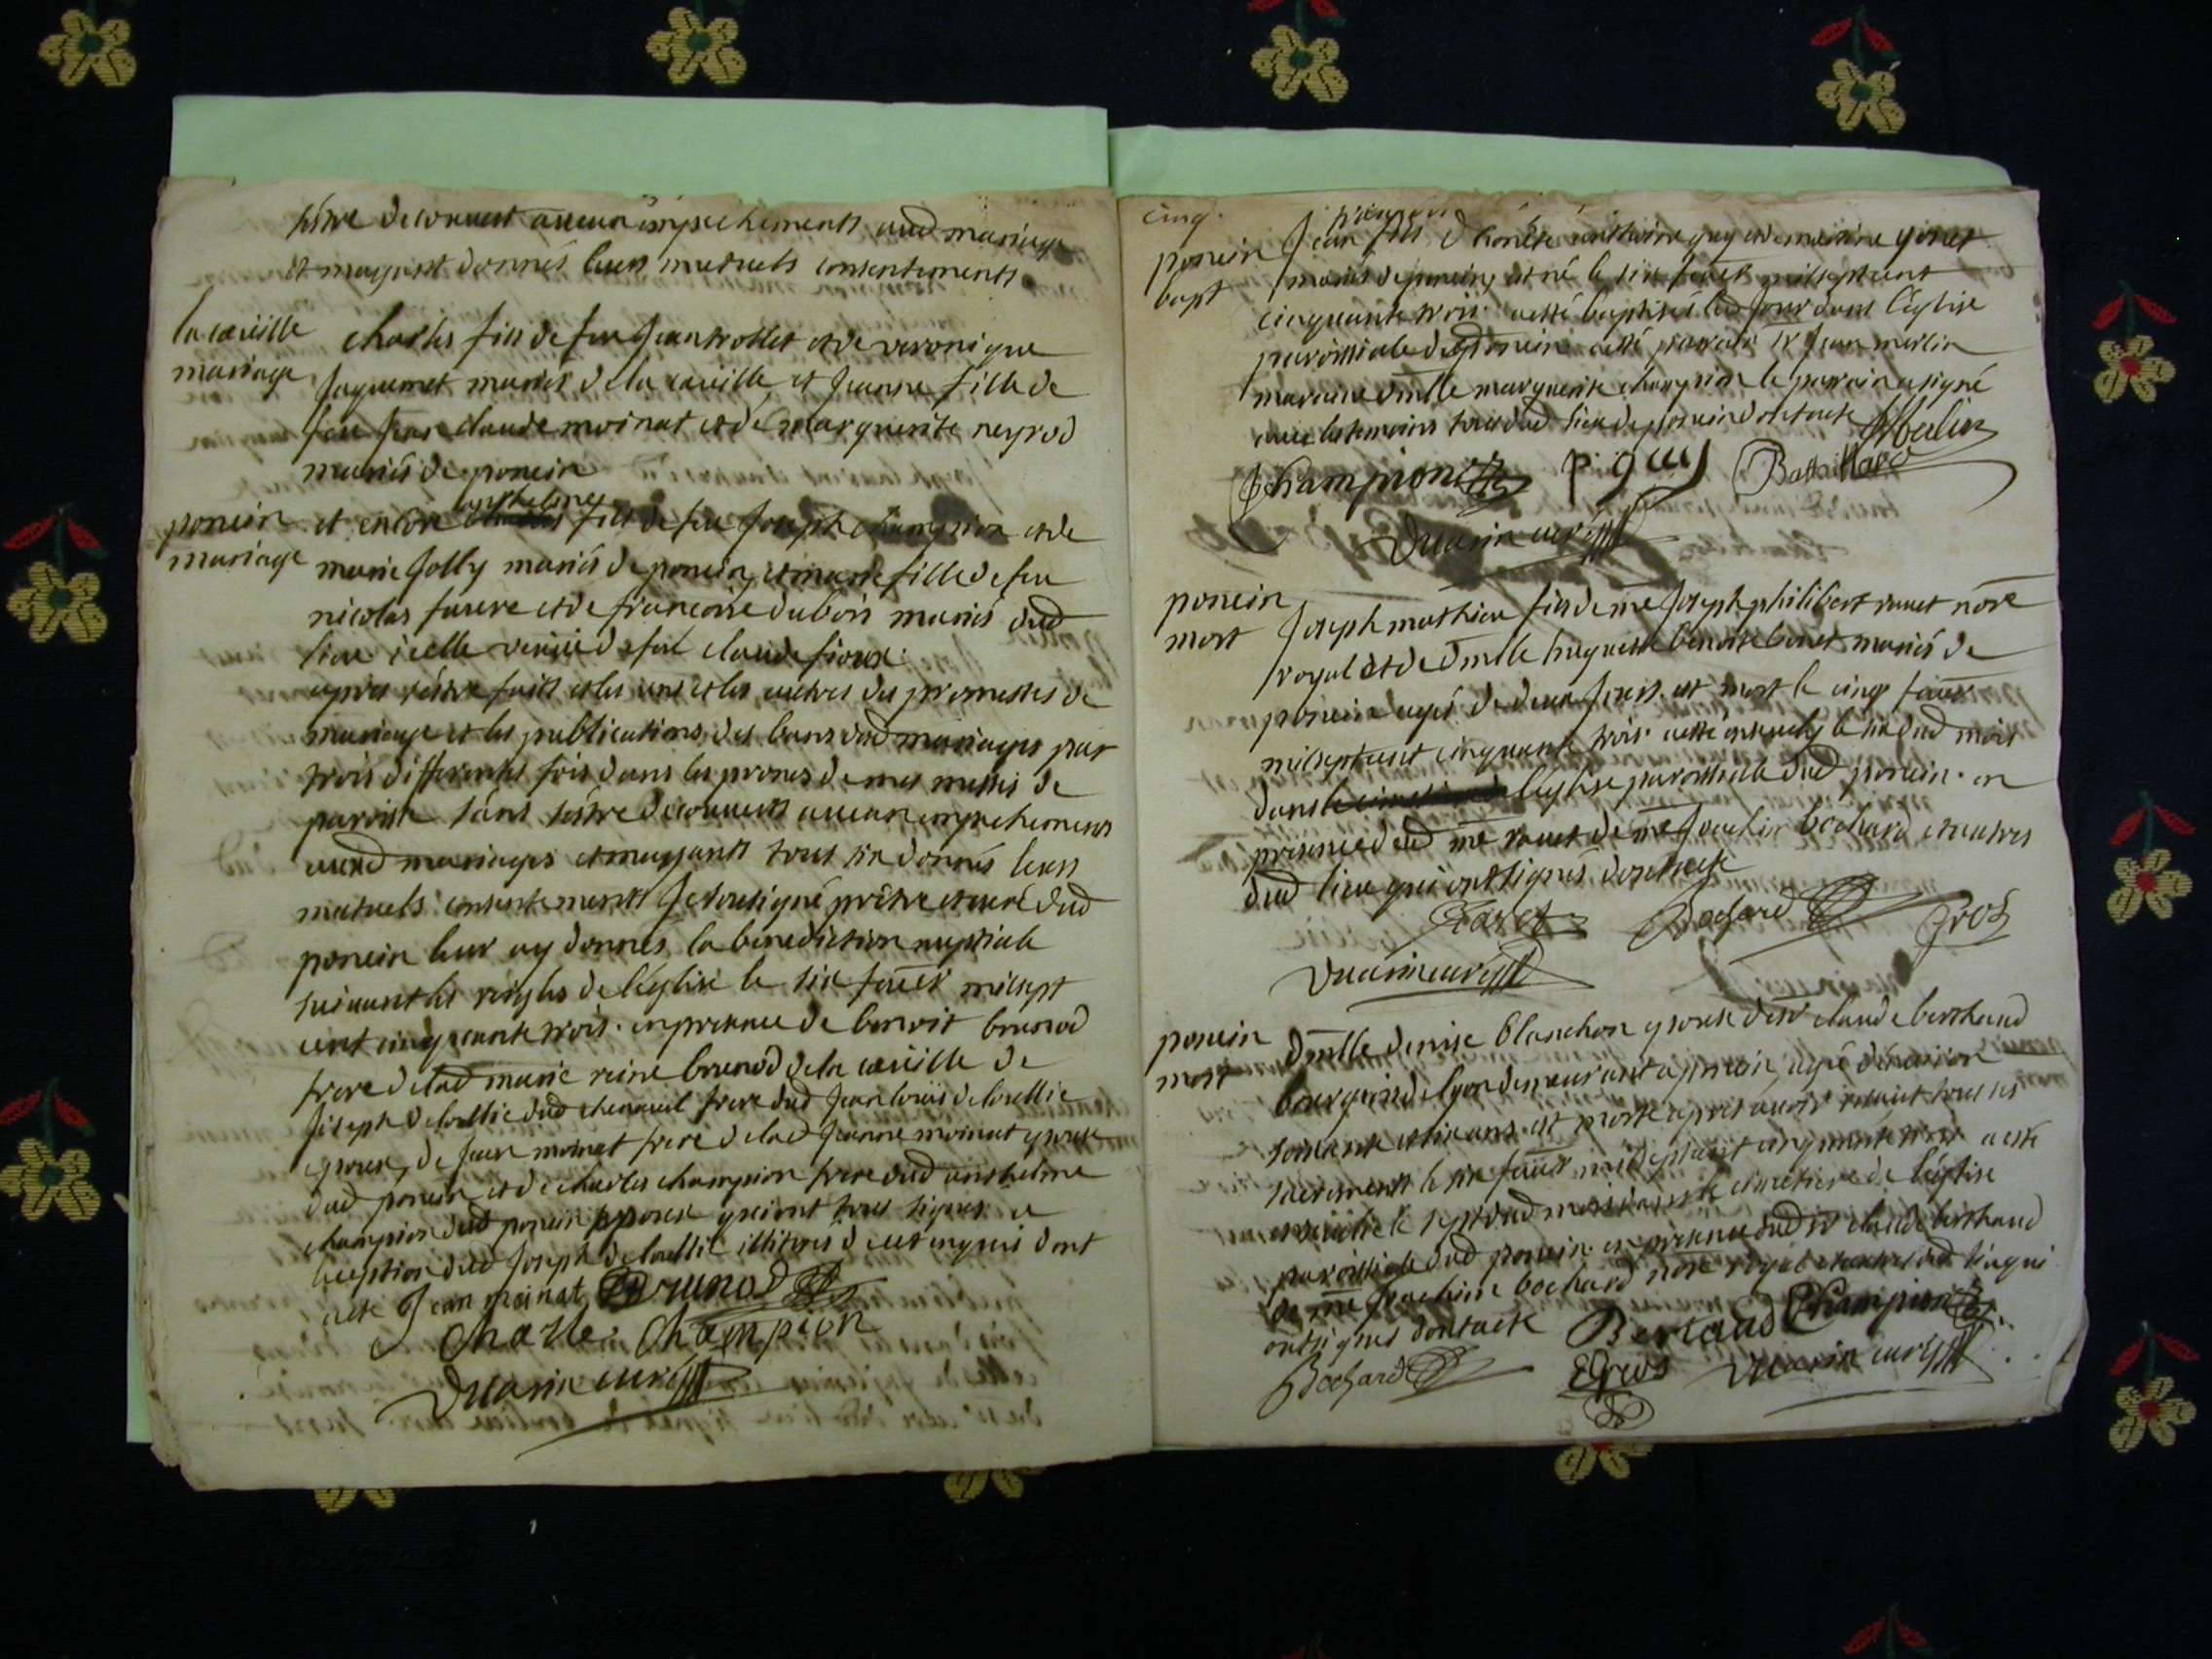 sêtre decouvert aucun empechements aud mariage
et mayant donnés leurs mutuels consentements
la cueille
mariage
charles fils de feu Jean trollet et de veronique
Jaquemet mariés de la cueille et Jeanne fille de
feu Jean claude moinat et de marguerite neyrod
mariés de poncin
poncin
mariage
et encore anthelme fils de feu Joseph champion et de
marie Jolly mariés de poncin, et marie fille de feu
nicolas et de francoise dubois mariés dud
lieu icelle veuve de feu claude
apres sêtre faits et les uns et les autres des promesses de
mariage et les publications des bans dud mariages par
trois differentes fois dans les prones de mes messes de
paroisse sans sêtre decouverts aucun empechements
auxd mariages et mayants tous six donnés leurs
mutuels consentements Je soussigné prêtre et curé dud
poncin leur ay donnés la benediction nuptiale
suivant les reigles de léglise le six fauer milsept
cent cinquante trois. en presence de benoit brunod
frere de lad marie reine brunod de la cueille de
Joseph dud frere dud Jean louis
epoux, de Jean moinat frere de lad Jeanne moinat epouse
dud poncin et de charles champion frere dud anthelme
champion dud poncin epoux qui ont tous signes a
lexeption dud Joseph illiteres de ce enquis dont
acte Jean moinat Brunod
Charles Champion
Vuarin curé
cinq.
poncin
bapt
Jean fils d'honête anthoine guy et de
mariés de poncin, est né le six fauer milsept cent
cinquante trois. a esté baptisé led jour dans léglise
paroissiale dud poncin a esté parrain sr Jean merlin
marraine dmlle marguerite champion le parrain a signé
avec les temoins tous dud lieu de poncin dont acte JMerlin
Champion p. guy Battaillard
Vuarin curé
poncin
mort
Joseph mathieu fils de me Joseph philibert ravet nore
royal et de dmlle huguette benoite mariés de
poncin agé de deux Jours est mort le cinq fauer
milsept cent cinquante trois. a esté ensevely le six dud mois
dans léglise paroissiale dud poncin. en
presence dud me ravet de me Joachim bochard et autres
dud lieu qui ont signés dont acte
Ravet Bochard Gros
Vuarin curé
poncin
mort
dmlle denise blanchon epouse de sr claude berthaud
bourgeois de lyon demeurant a poncin, agé denviron
soixante et six ans. est morte apres avoir receut tous ses
sacrements le six fauer mil sept cent cinquante trois a esté
le sept dud mois dans le cimetiere de léglise
paroissiale dud poncin. en presence dud sr claude berthaud
de me Joachim bochard nore royal et autres dud lieu qui
ont signes dont acte Bertaud Champion
Bochard Gros Vuarin curé